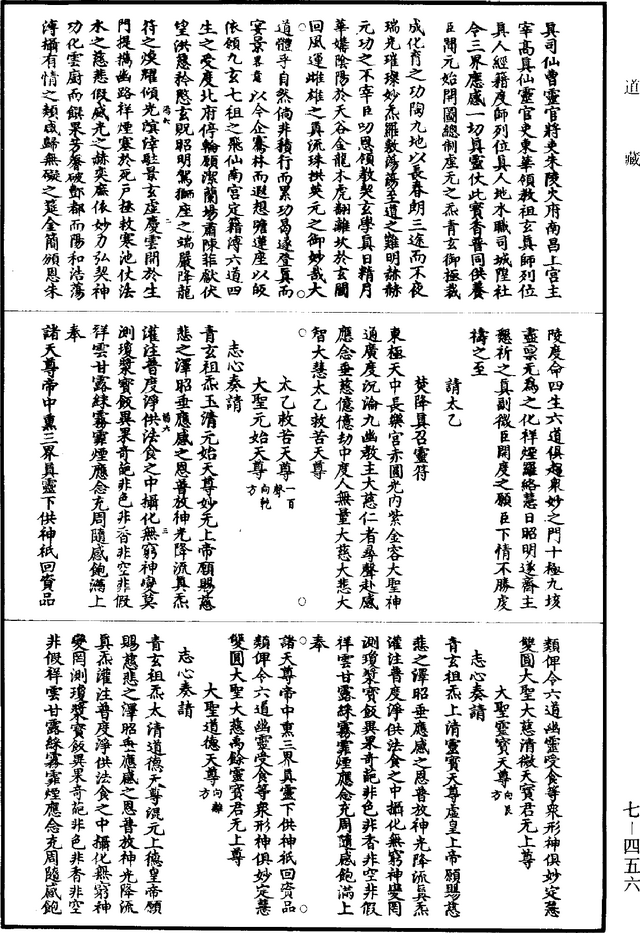 道藏
真司仙曹靈官將吏朱陵火府南昌上宮主
宰高真仙靈官吏東華領教祖玄真師列位
真人經籍度師列位真人地水職司城隍社
令三界應感一切真靈仗此寶香普同供養
臣聞元始開圖總制虛元之炁青玄御極裁
成化育之功陶九地以長春朗三途而不夜
瑞光璀璨妙炁羅敷蕩蕩至道之難明赫赫
元功之不宰臣叨恩領教契玄學真日精月
華媾陰陽於天谷金龍木虎翻離坎於玄關
回風運雌雄之真流珠拱英元之御妙哉大
道體乎自然倘非積行而累功曷遂登真而
宴景以今企騫林而遐想瞻蓮座以皈
依領九玄七祖之飛仙南宮定籍溥六道四
生之受度北府停輪願潔蘭場肅陳菲獻伏
望洪慈矜愍玄貺昭明駕獅座之端嚴降龍
符之煥耀傾光顗降駐景玄虛慶雲開於生
門提攜幽路祥煙塞於死戶拯救寒池仗法
水之慈悲假威光之赫奕廠依妙力弘契神
功化雲廚而饌果芳馨破酆都而陽和浩蕩
溥攝有情之類咸歸無礙之筵金簡頒恩朱
陵度命四生六道俱趨眾妙之門十極九垓
盡稟无為之化祥煙羅絡慧日昭明遂齋主
懇祈之真副微臣開度之願臣下情不勝虔
禱之至
請太乙
焚降真召靈符
東極天中長樂宮赤圓光內紫金容大聖神
通廣度沉淪九幽教主大慈仁者尋聲赴感
應念垂慈億億劫中度人無量大慈大悲大
智大慧太乙救苦天尊
太乙救苦天尊一百聲
大聖元始天尊向乾方
志心奏請
青玄祖炁玉清元始天尊妙元上帝願賜慈
悲之澤昭垂應感之恩普放神光降流真炁
灌注普度淨供法食之中攝化無窮神變莫
測瓊漿寶飯異果奇葩非色非香非空非假
祥雲甘露綵霧霏煙應念充周隨感飽滿上
奉
諸天尊帝中熏三界真靈下供神祇回資品
類俾令六道幽靈受食等眾形神俱妙定慧
雙圓大聖大慈清微天寶君元上尊
大聖靈寶天尊向艮方
志心奏請
青玄祖炁上清靈寶天尊虛皇上帝願賜慈
悲之澤昭垂應感之恩普放神光降流真炁
灌注普度淨供法食之中攝化無窮神變罔
測瓊漿寶飯異果奇葩非色非香非空非假
祥雲甘露綵霧霏煙應念充周隨感飽滿上
奉
諸天尊帝中熏三界真靈下供神祇回資品
類俾令六道幽靈受食等眾形神俱妙定慧
雙圓大聖大慈禹餘靈寶君元上尊
大聖道德天尊向離方
志心奏請
青玄祖炁太清道德天尊混元上德皇帝願
賜慈悲之澤昭垂應感之恩普放神光降流
真炁灌注普度淨供法食之中攝化無窮神
變罔測瓊漿寶飯異果奇葩非色非香非空
非假祥雲甘露綵霧霏煙應念充周隨感飽
七—四五六